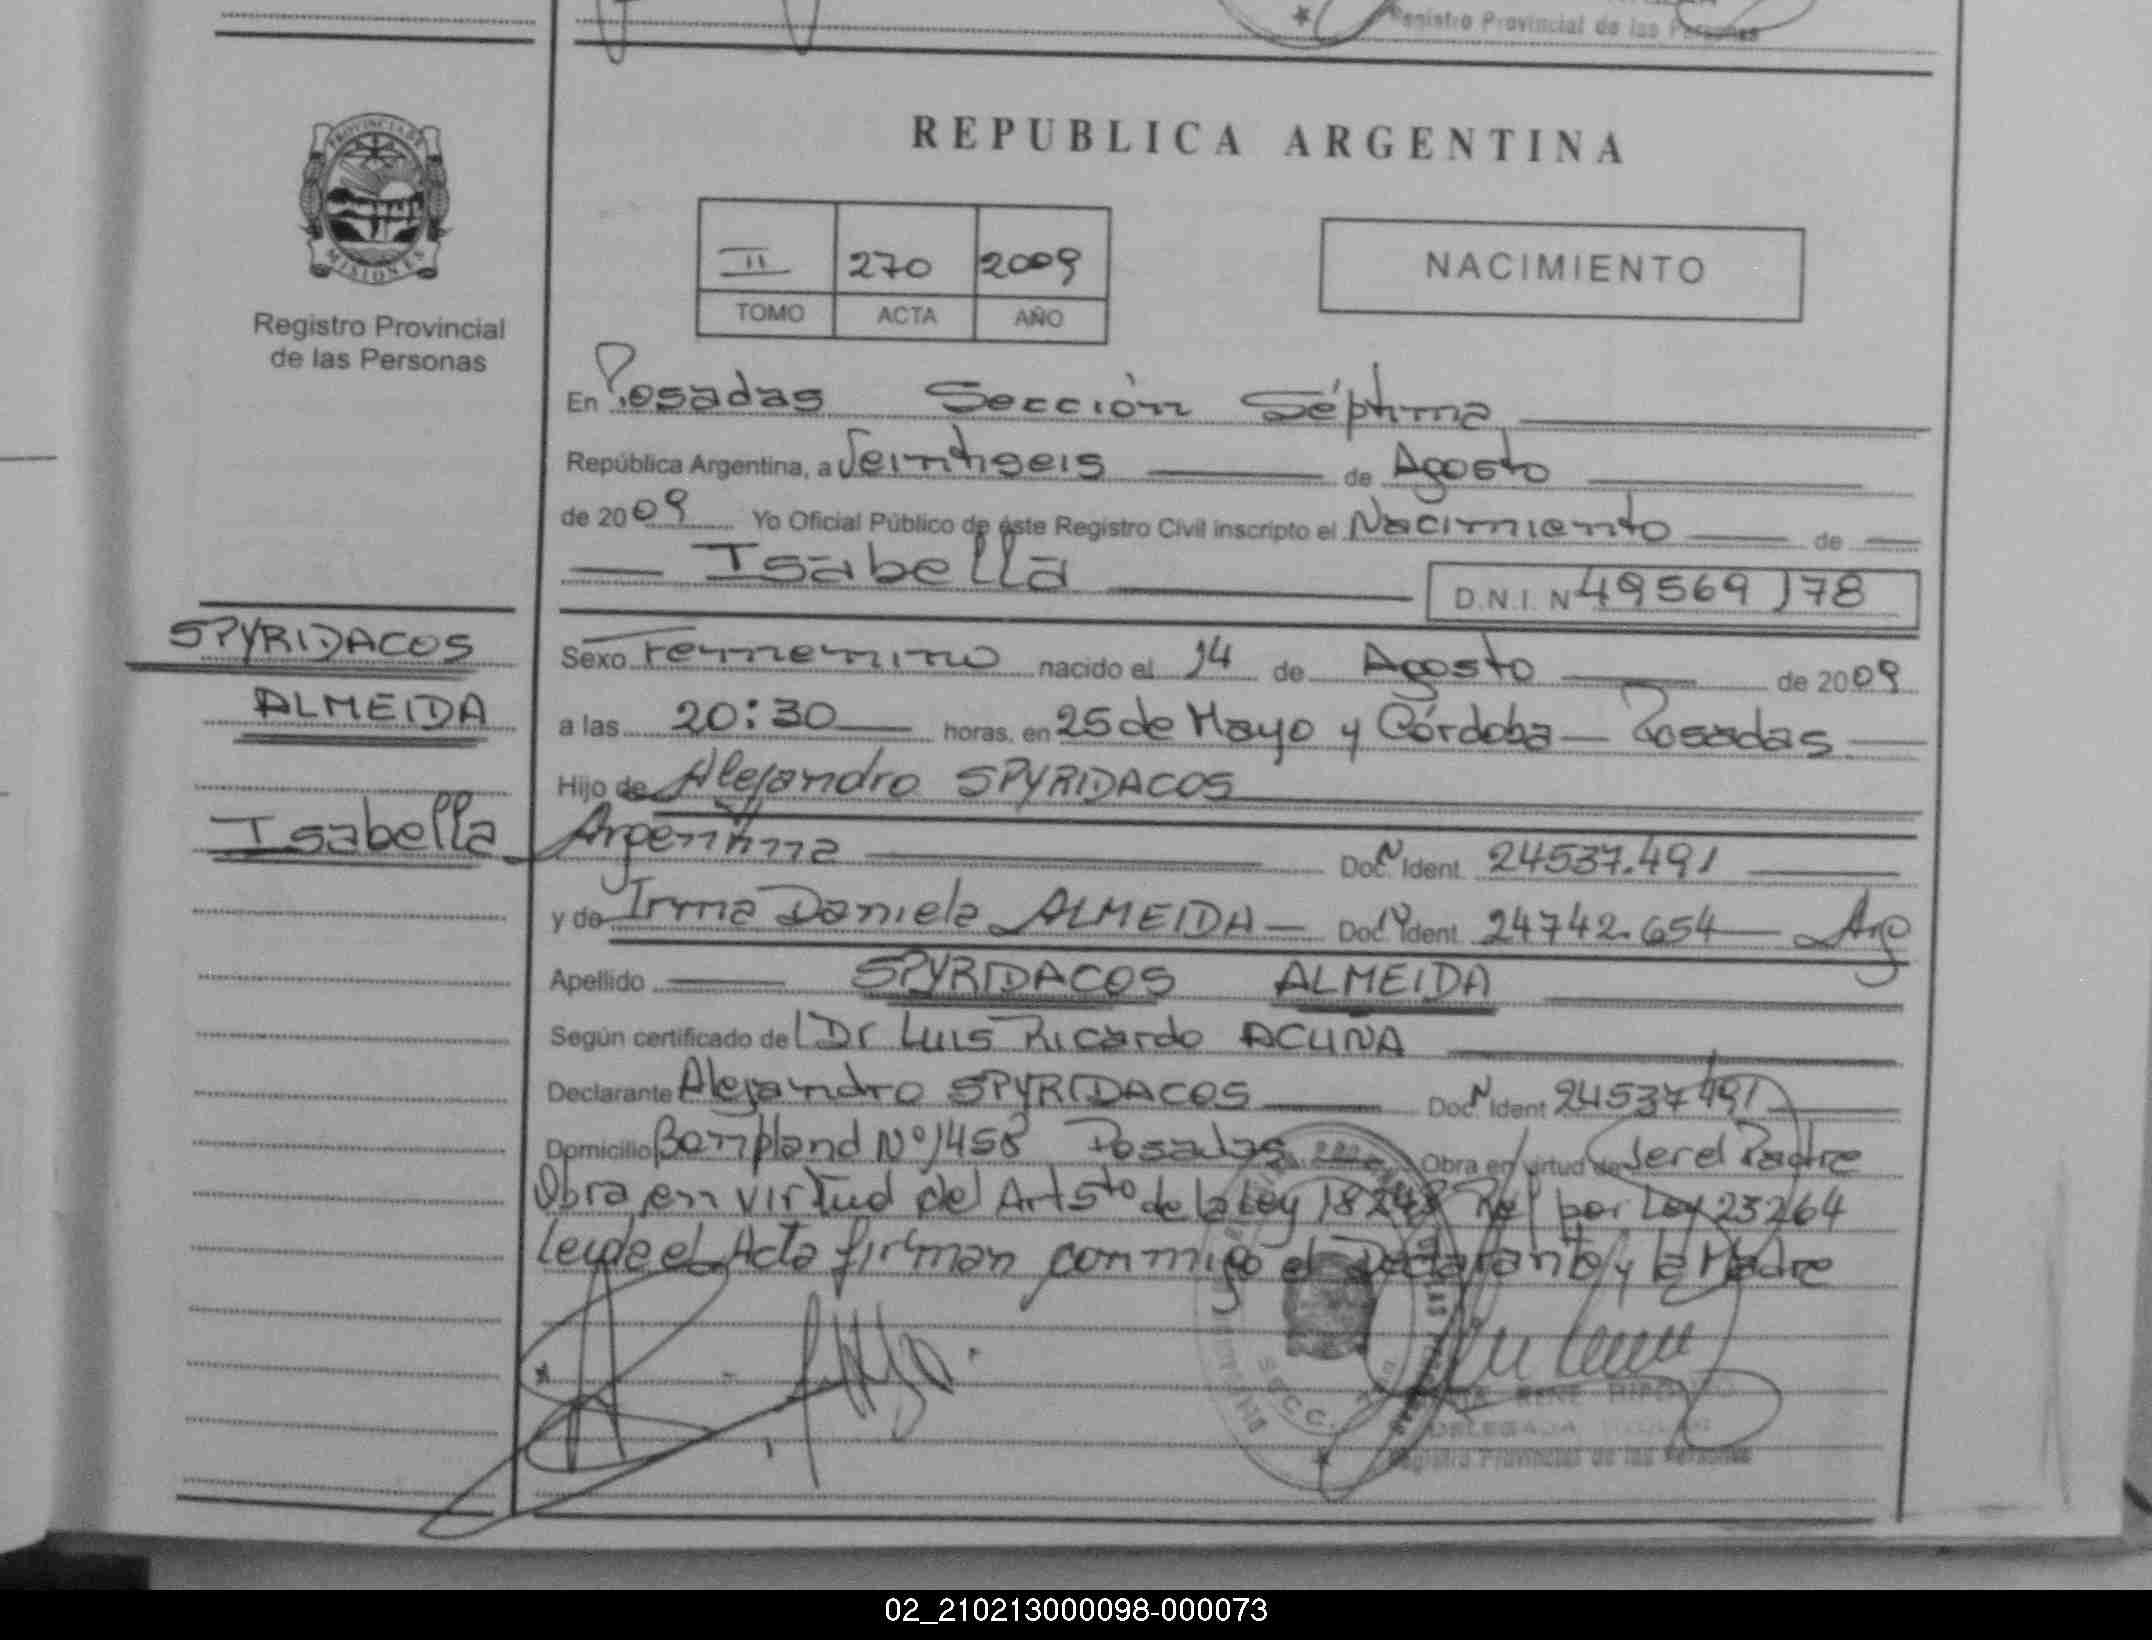 Registro Provincial de las Personas
PROVINCIA DE
MISIONES
Registro Provincial
de las Personas
REPUBLICA ARGENTINA
II 270 2009
TOMO ACTA AÑO
NACIMIENTO
En Posadas Sección Séptima
República Argentina, a Veintiseis de Agosto
de 2009 Yo Oficial Público de éste Registro Civil inscripto el Nacimiento de
Isabella D.N.I. N 49569178
SPYRIDACOS
ALMEIDA
Isabella
Sexo Femenino nacido el 14 de Agosto de 2009
a las 20:30 horas, en 25 de Mayo y Córdoba - Posadas
Hijo de Alejandro SPYRIDACOS
Argentina Doc. N Ident. 24537.491
y de Irma Daniela ALMEIDA - Doc. N Ident. 24742.654 Arg
Apellido SPYRIDACOS ALMEIDA
Según certificado del Dr Luis Ricardo ACUÑA
Declarante Alejandro SPYRIDACOS Doc. N Ident 24537491
Domicilio Bompland Nº 1458 Posadas Obra en virtud de Ser el Padre
Obra en virtud del Art 5to de la Ley 18248 Ref por Ley 23264
Leyde el Acta firman conmigo el Declarante y la Madre
SECC.
RENE
DELEGADA TITULAR
Registro Provincial de las Personas
02_210213000098-000073